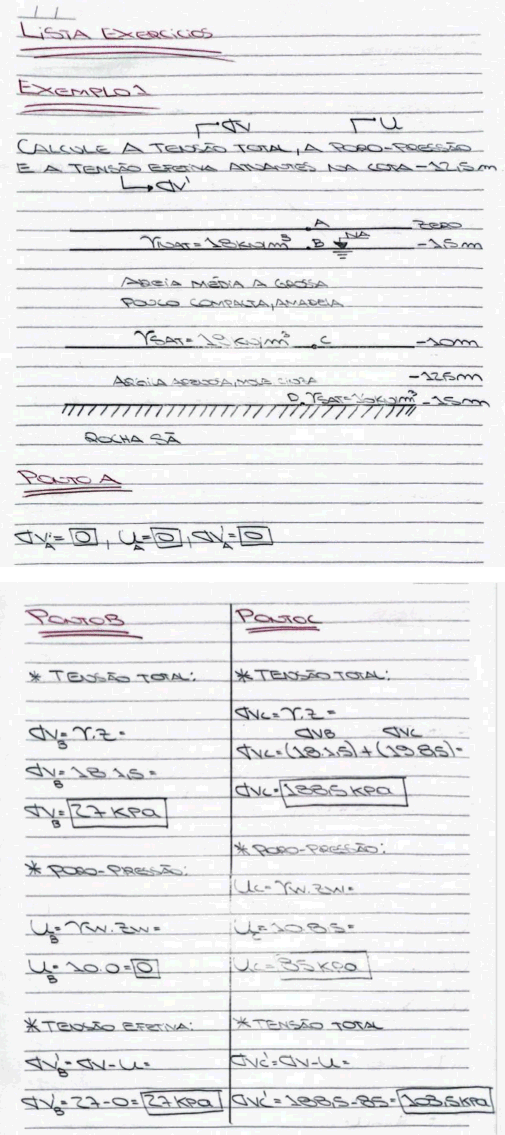 LISTA EXERCÍCIOS
EXEMPLO 1
σV U
CALCULE A TENSÃO TOTAL, A PORO-PRESSÃO
E A TENSÃO EFETIVA ATUANTES NA COTA -12,5m
σV'
A ZERO
γNAT = 18 KN/m³ B NA -1,5m
AREIA MÉDIA A GROSSA
POUCO COMPACTA, AMARELA
γSAT = 19 KN/m³ C -10m
-12,5m
ARGILA ARENOSA, MOLE
D γSAT = 16KN/m³ -15m
ROCHA SÃ
PONTO A
σVA = 0, UA = 0, σV'A = 0
PONTO B
* TENSÃO TOTAL:
σVB = γ.Z =
σVB = 18.1,5 =
σVB = 27 KPa
* PORO-PRESSÃO:
UB = γW.ZW =
UB = 10.0 = 0
* TENSÃO EFETIVA:
σV'B = σV - U =
σV'B = 27 - 0 = 27 KPa
PONTO C
* TENSÃO TOTAL:
σVC = γ.Z =
σVB σVC
σVC = (18.1,5) + (19.8,5) =
σVC = 188,5 KPa
* PORO-PRESSÃO:
UC = γW.ZW =
UC = 10.8,5 =
UC = 85 KPa
* TENSÃO TOTAL
σVC' = σV - U =
σVC' = 188,5 - 85 = 103,5 KPa